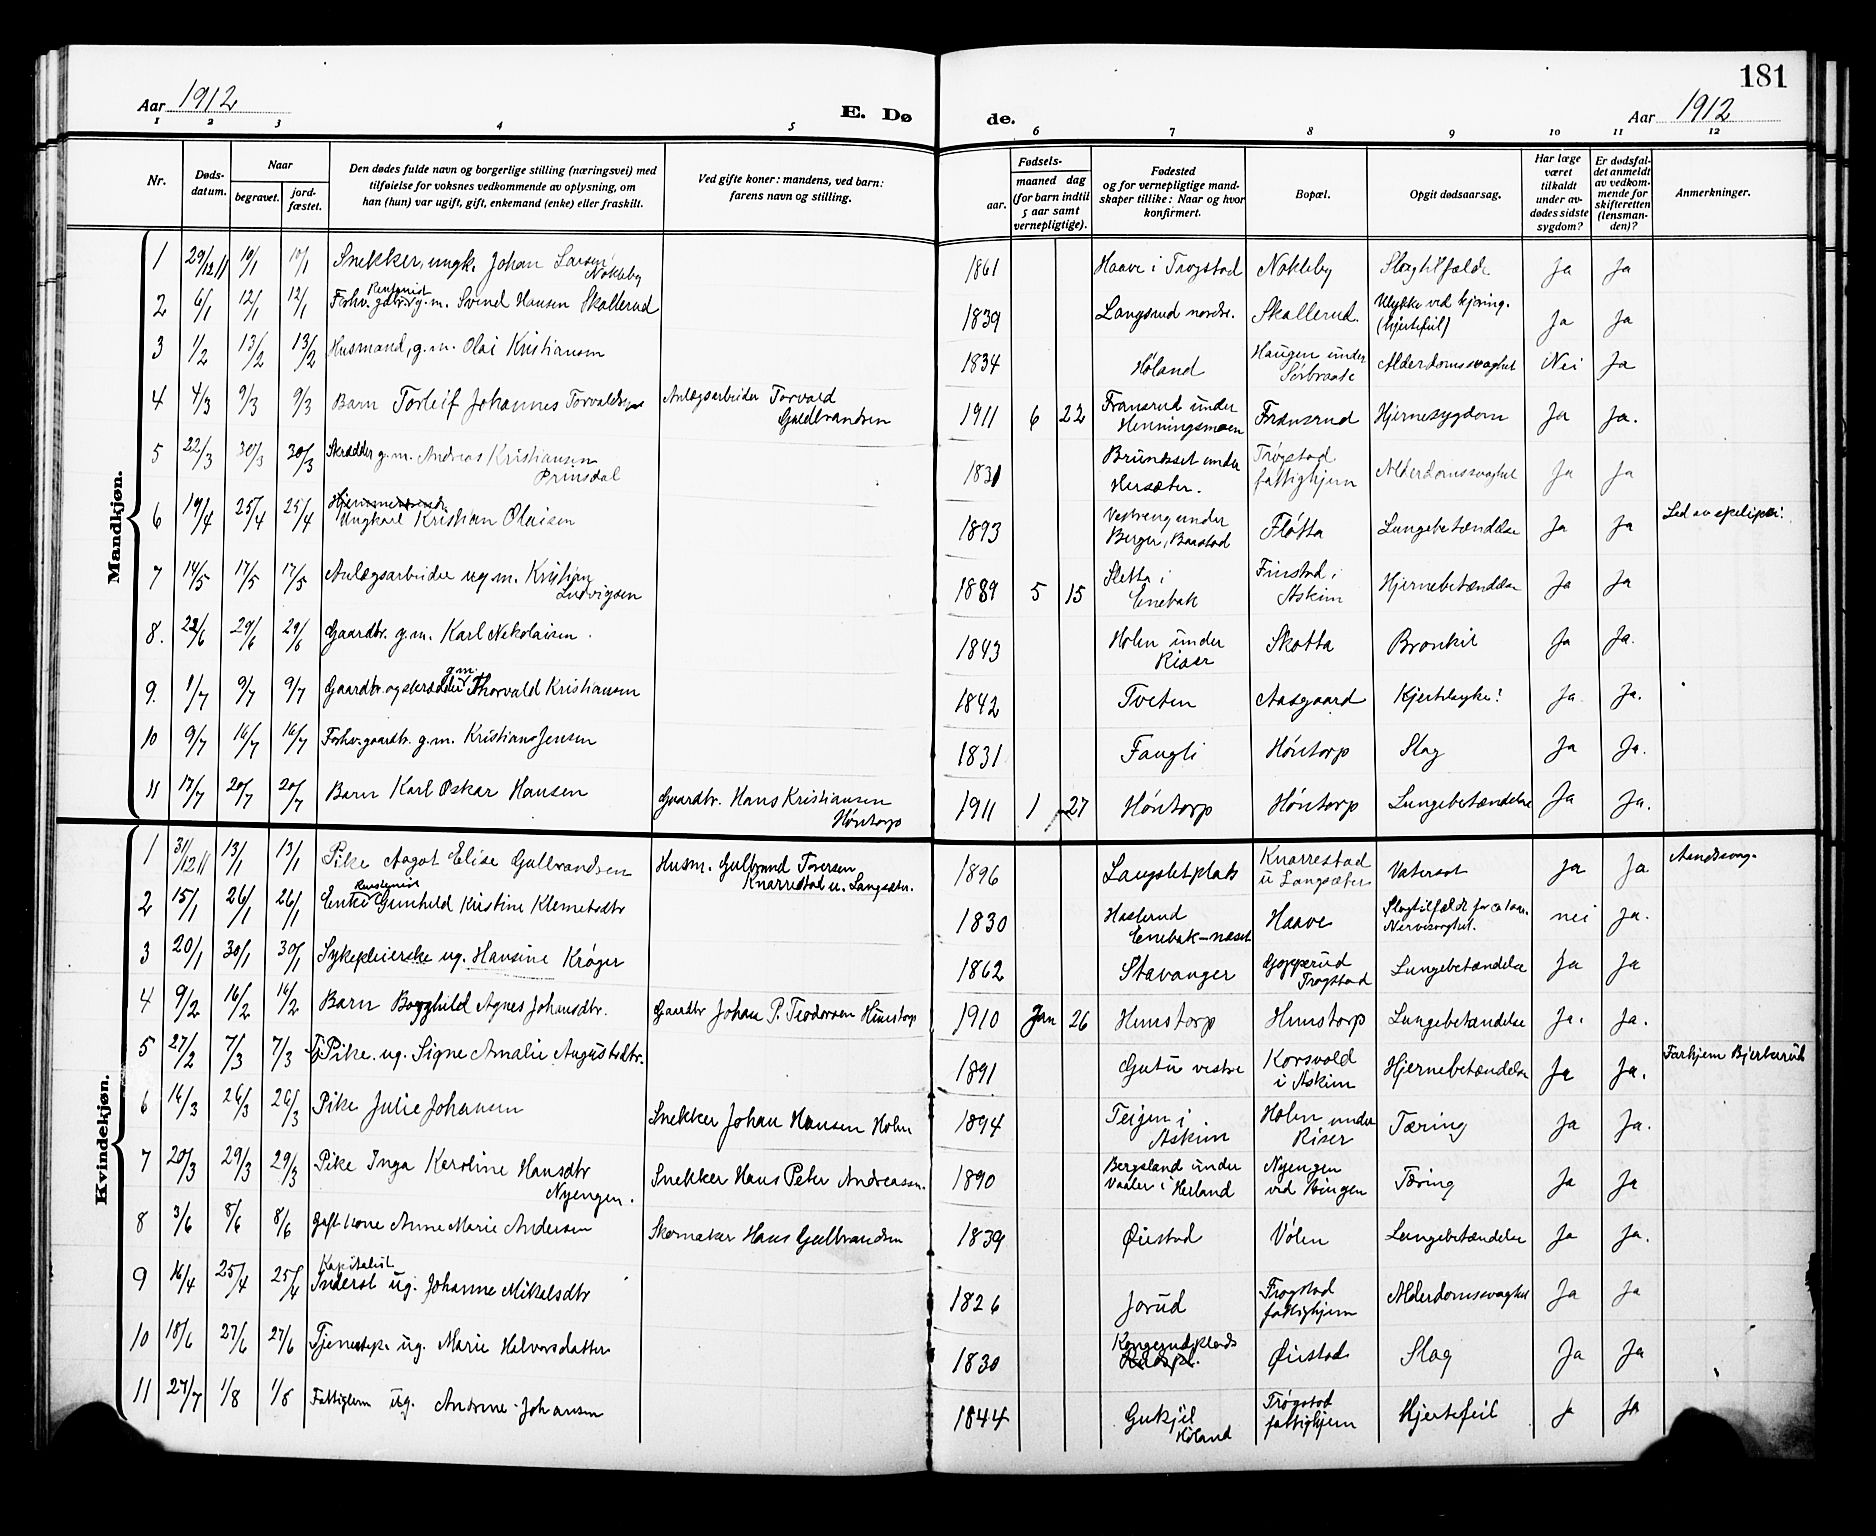 181
Aar 1912
E. Dø
de.
Aar 1912
1 2 3 4 5 6 7 8 9 10 11 12
Nr.
Døds-
datum.
Naar
begravet.
jord-
fæstet.
Den dødes fulde navn og borgerlige stilling (næringsvei) med
tilføielse for voksnes vedkommende av oplysning, om
han (hun) var ugift, gift, enkemand (enke) eller fraskilt.
Ved gifte koner: mandens, ved barn:
farens navn og stilling.
Fødsels-
aar.
maaned
dag
(for barn indtil
5 aar samt
vernepligtige).
Fødested
og for vernepligtige mand-
skaper tillike: Naar og hvor
konfirmert.
Bopæl.
Opgit dødsaarsag.
Har læge
været
tilkaldt
under av-
dødes sidste
sygdom?
Er dødsfal-
det anmeldt
av vedkom-
mende for
skifteretten
(lensman-
den)?
Anmerkninger.
Mandkjøn.
1 29/12 11 10/1 10/1 Snekker, ungk. Johan Larsen Nokleby 1861 Haave i Trøgstad Nokleby Slagtilfælde Ja Ja
2 6/1 12/1 12/1 Forhv. gaardbr. Rentenist g.m. Svend Hansen Skallerud 1839 Langsrud nordre. Skallerud. Ulykke ved kjøring. (hjertefeil) Ja Ja
3 1/2 13/2 13/2 Husmand, g.m. Olai Kristiansen 1834 Høland Haugen under Sørbraate Alderdomssvaghet Nei Ja
4 4/3 9/3 9/3 Barn Torleif Johannes Torvaldsen Anlægsarbeider Torvald Guldbrandsen 1911 6 22 Fransrud under Henningsmoen Fransrud Hjernesygdom Ja Ja.
5 22/3 30/3 30/3 Skrædder g.m. Andreas Kristiansen Prinsdal 1831 under Hersæter. Trøgstad fattighjem Alderdomssvaghet Ja Ja
6 19/4 25/4 25/4 Ungkarl Kristian Olaisen 1893 Vestreng under Berger, Baastad Fløtta Lungebetændelse Ja Ja Led av epelipsi.
7 14/5 17/5 17/5 Anlægsarbeider ug m. Kristian Ludvigsen 1889 5 15 Sletta i Enebak Finstad i Askim Hjernebetændelse Ja Ja
8. 22/6 29/6 29/6 Gaardbr. g.m. Karl Nikolaisen. 1843 Holen under Riser Skotta Bronkit Ja Ja.
9. 1/7 9/7 9/7 Gaardbr. og skrædder g.m. Thorvald Kristiansen 1842 Tveten Aasgaard Hjertesyke! Ja Ja.
10 9/7 16/7 16/7 Forhv. gaardbr. g.m. Kristians Jensen 1831 Fangli Høntorp Slag Ja Ja.
11 17/7 20/7 20/7 Barn Karl Oskar Hansen Gaardbr. Hans Kristiansen Høntorp 1911 1 27 Høntorp Høntorp Lungebetændelse Ja Ja.
Kvindekjøn.
1 31/12 11 13/1 13/1 Pike Aagot Elise Gulbrandsen Husm. Gulbrand Toversen Knarrestad u. Langsæter. 1896 Langsletplads Knarrestad u Langsæter Vatersot Ja Ja Aandssvag.
2 15/1 26/1 26/1 Enke Gunhild Kristine Klemetsdtr 1830 Haslerud Enebak-næset Haave Slagtilfælde for Nervesvaghet. nei Ja.
3 20/1 30/1 30/1 Sykepleierske ug. Hansine Krøger 1862 Stavanger Gopperud Trøgstad Lungebetændelse Ja Ja
4 9/2 16/2 16/2 Barn Borghild Agnes Johansdtr. Gaardbr Johan P. Teodorsen Himstorp 1910 Jan 26 Himstorp Himstorp Lungebetændelse Ja. Ja.
5 27/2 7/3 7/3 Pike. ug. Signe Amalie Augustsdtr. 1891 Gutu vestre Korsvold i Askim Hjernebetændelse Ja Ja. Farhjem Bjerkerud
6 14/3 26/3 26/3 Pike Julie Johansen Snekker Johan Hansen Holen 1894 Teigen i Askim Holen under Riser Tæring Ja Ja.
7 20/3 29/3 29/3 Pike Inga Karoline Hansdtr Nyengen. Snekker Hans Peter Andreassen. 1890 Bergsland under Vaaler i Herland Nyengen ved Tæring Ja Ja
8 3/6 8/6 8/6 Gift kone Anne Marie Andersen Skomaker Hans Gulbrandsen 1839 Øiestad Volen Lungebetændelse Ja Ja.
9 16/4 25/4 25/4 Kapitalist Inderst ug. Johanne Mikelsdtr 1826 Jorud Trøgstad fattighjem Alderdomssvaghet Ja Ja
10 18/6 27/6 27/6 Tjenestepike ug. Marie Halvorsdatter 1830 Kongerudplads Øiestad Slag Ja Ja
11 27/7 1/8 1/8 Fattiglem ug. Andrine Johansen 1844 Gukjil Høland Trøgstad fattighjem Hjertefeil Ja Ja